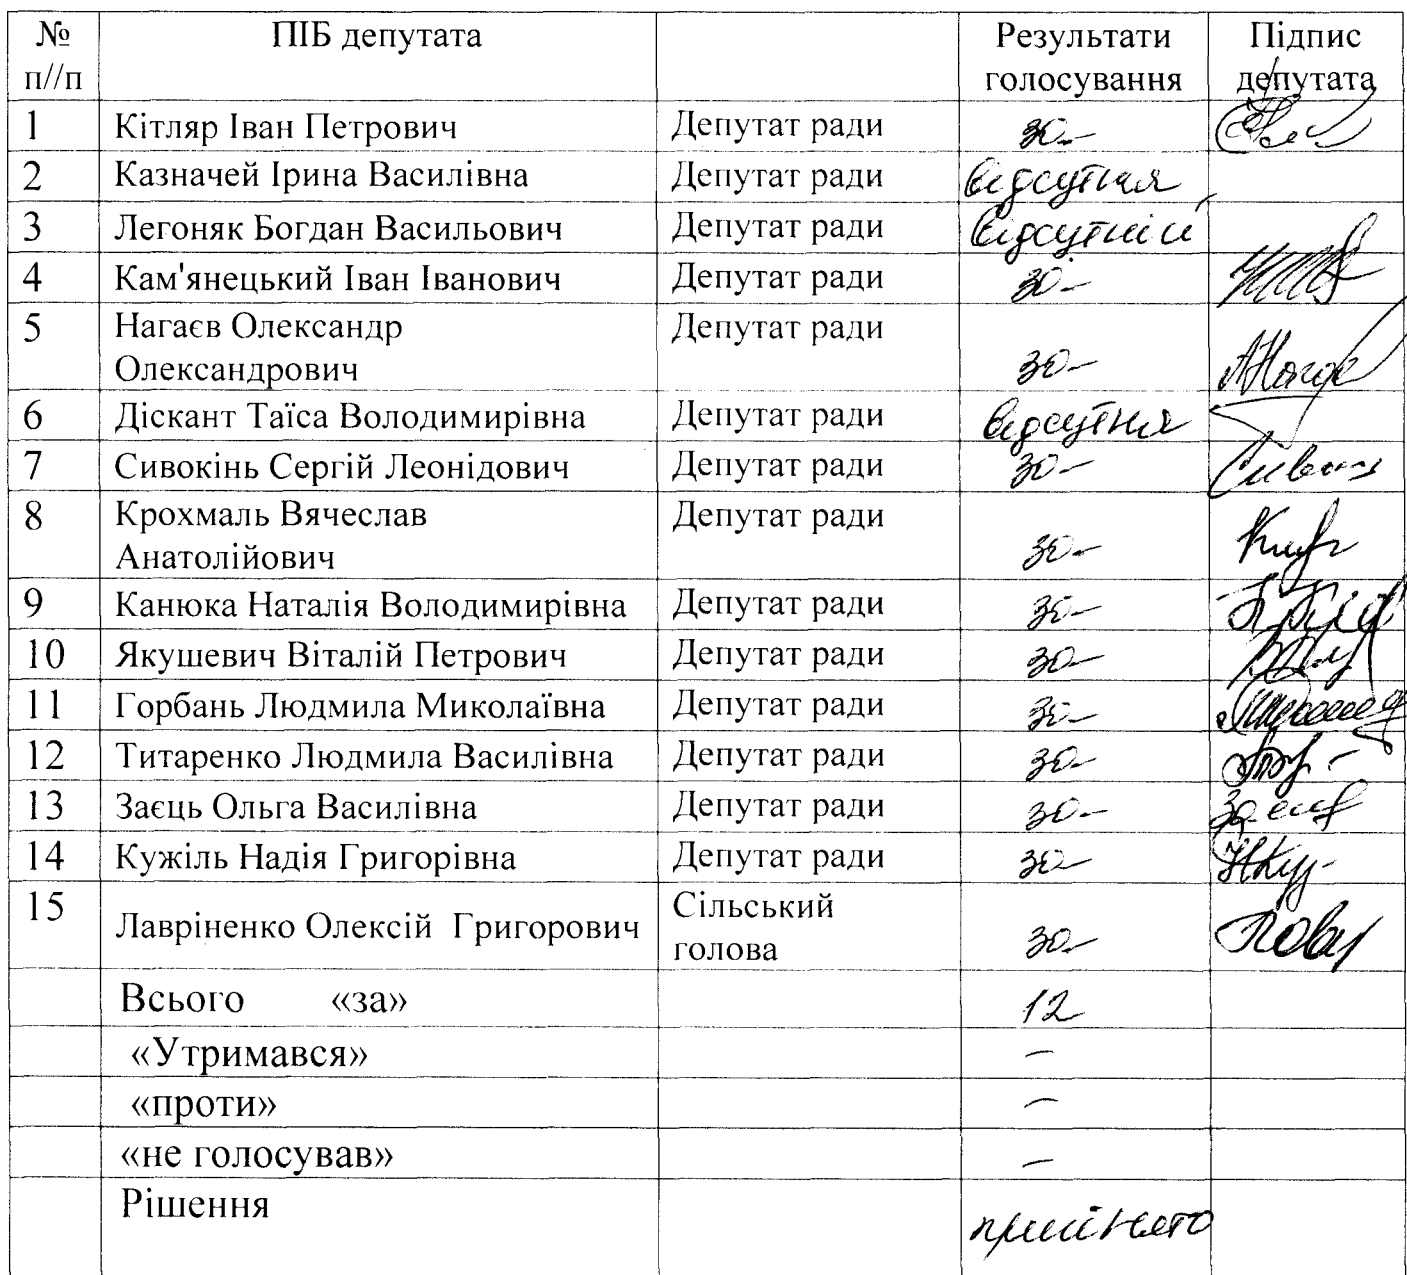 № ПІБ депутата Результати Підпис
п//п голосування депутата
1 Кітляр Іван Петрович Депутат ради за
2 Казначей Ірина Василівна Депутат ради відсутня
3 Легоняк Богдан Васильович Депутат ради відсутній
4 Кам'янецький Іван Іванович Депутат ради за
5 Нагаєв Олександр Депутат ради
Олександрович за
6 Діскант Таїса Володимирівна Депутат ради відсутня
7 Сивокінь Сергій Леонідович Депутат ради за
8 Крохмаль Вячеслав Депутат ради
Анатолійович за
9 Канюка Наталія Володимирівна Депутат ради за
10 Якушевич Віталій Петрович Депутат ради за
11 Горбань Людмила Миколаївна Депутат ради за
12 Титаренко Людмила Василівна Депутат ради за
13 Заєць Ольга Василівна Депутат ради за
14 Кужіль Надія Григорівна Депутат ради за
15 Сільський
Лавріненко Олексій Григорович голова за
Всього «за» 12
«Утримався» –
«проти» –
«не голосував» –
Рішення прийнято